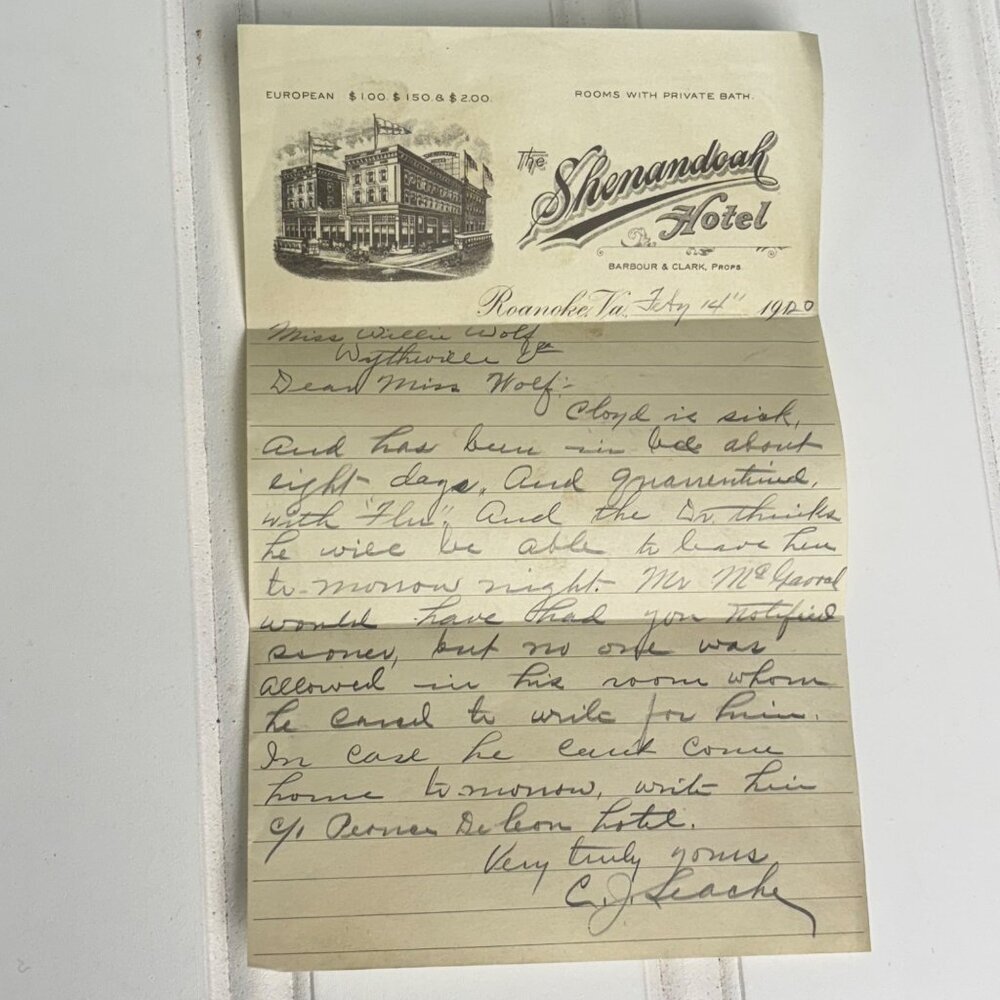 EUROPEAN $1.00. $1.50. & $2.00.
ROOMS WITH PRIVATE BATH.
The Shenandoah
Hotel
BARBOUR & CLARK, PROPS
Roanoke, Va. Feby 14" 1920
Miss Willie Wolf
Wytheville Va
Dear Miss Wolf:-
Cloyd is sick,
And has been in bed about
eight days, And Quarrentined,
with "Flu". And the Dr. thinks
he will be able to leave here
to-morrow night. Mr
would have had you notified
sooner, but no one was
allowed in his room whom
he cared to write for him.
In case he can't come
home tomorrow, write him
c/o Ponce De Leon hotel.
Very truly yours
C. J.